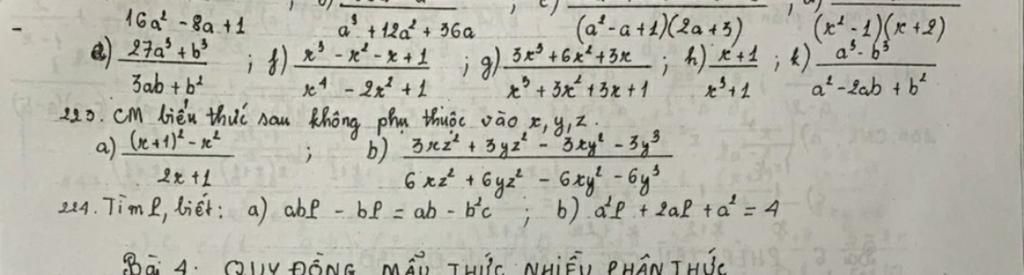 16a² - 8a + 1 ; a³ + 12a² + 36a ; (a² - a + 1)(2a + 3) ; (x² - 1)(x + 2)
e) (27a³ + b³)/(3ab + b²) ; f) (x³ - x² - x + 1)/(x⁴ - 2x² + 1) ; g) (3x³ + 6x² + 3x)/(x³ + 3x² + 3x + 1) ; h) (x + 1)/(x³ + 1) ; k) (a³ - b³)/(a² - 2ab + b²)
223. CM biểu thức sau không phụ thuộc vào x, y, z.
a) ((x + 1)² - x²)/(2x + 1) ; b) (3xz² + 3yz² - 3xy² - 3y³)/(6xz² + 6yz² - 6xy² - 6y³)
224. Tìm P, biết: a) abP - bP = ab - b²c ; b) a²P + 2aP + a² = 4
Bài 4: QUY ĐỒNG MẪU THỨC NHIỀU PHÂN THỨC